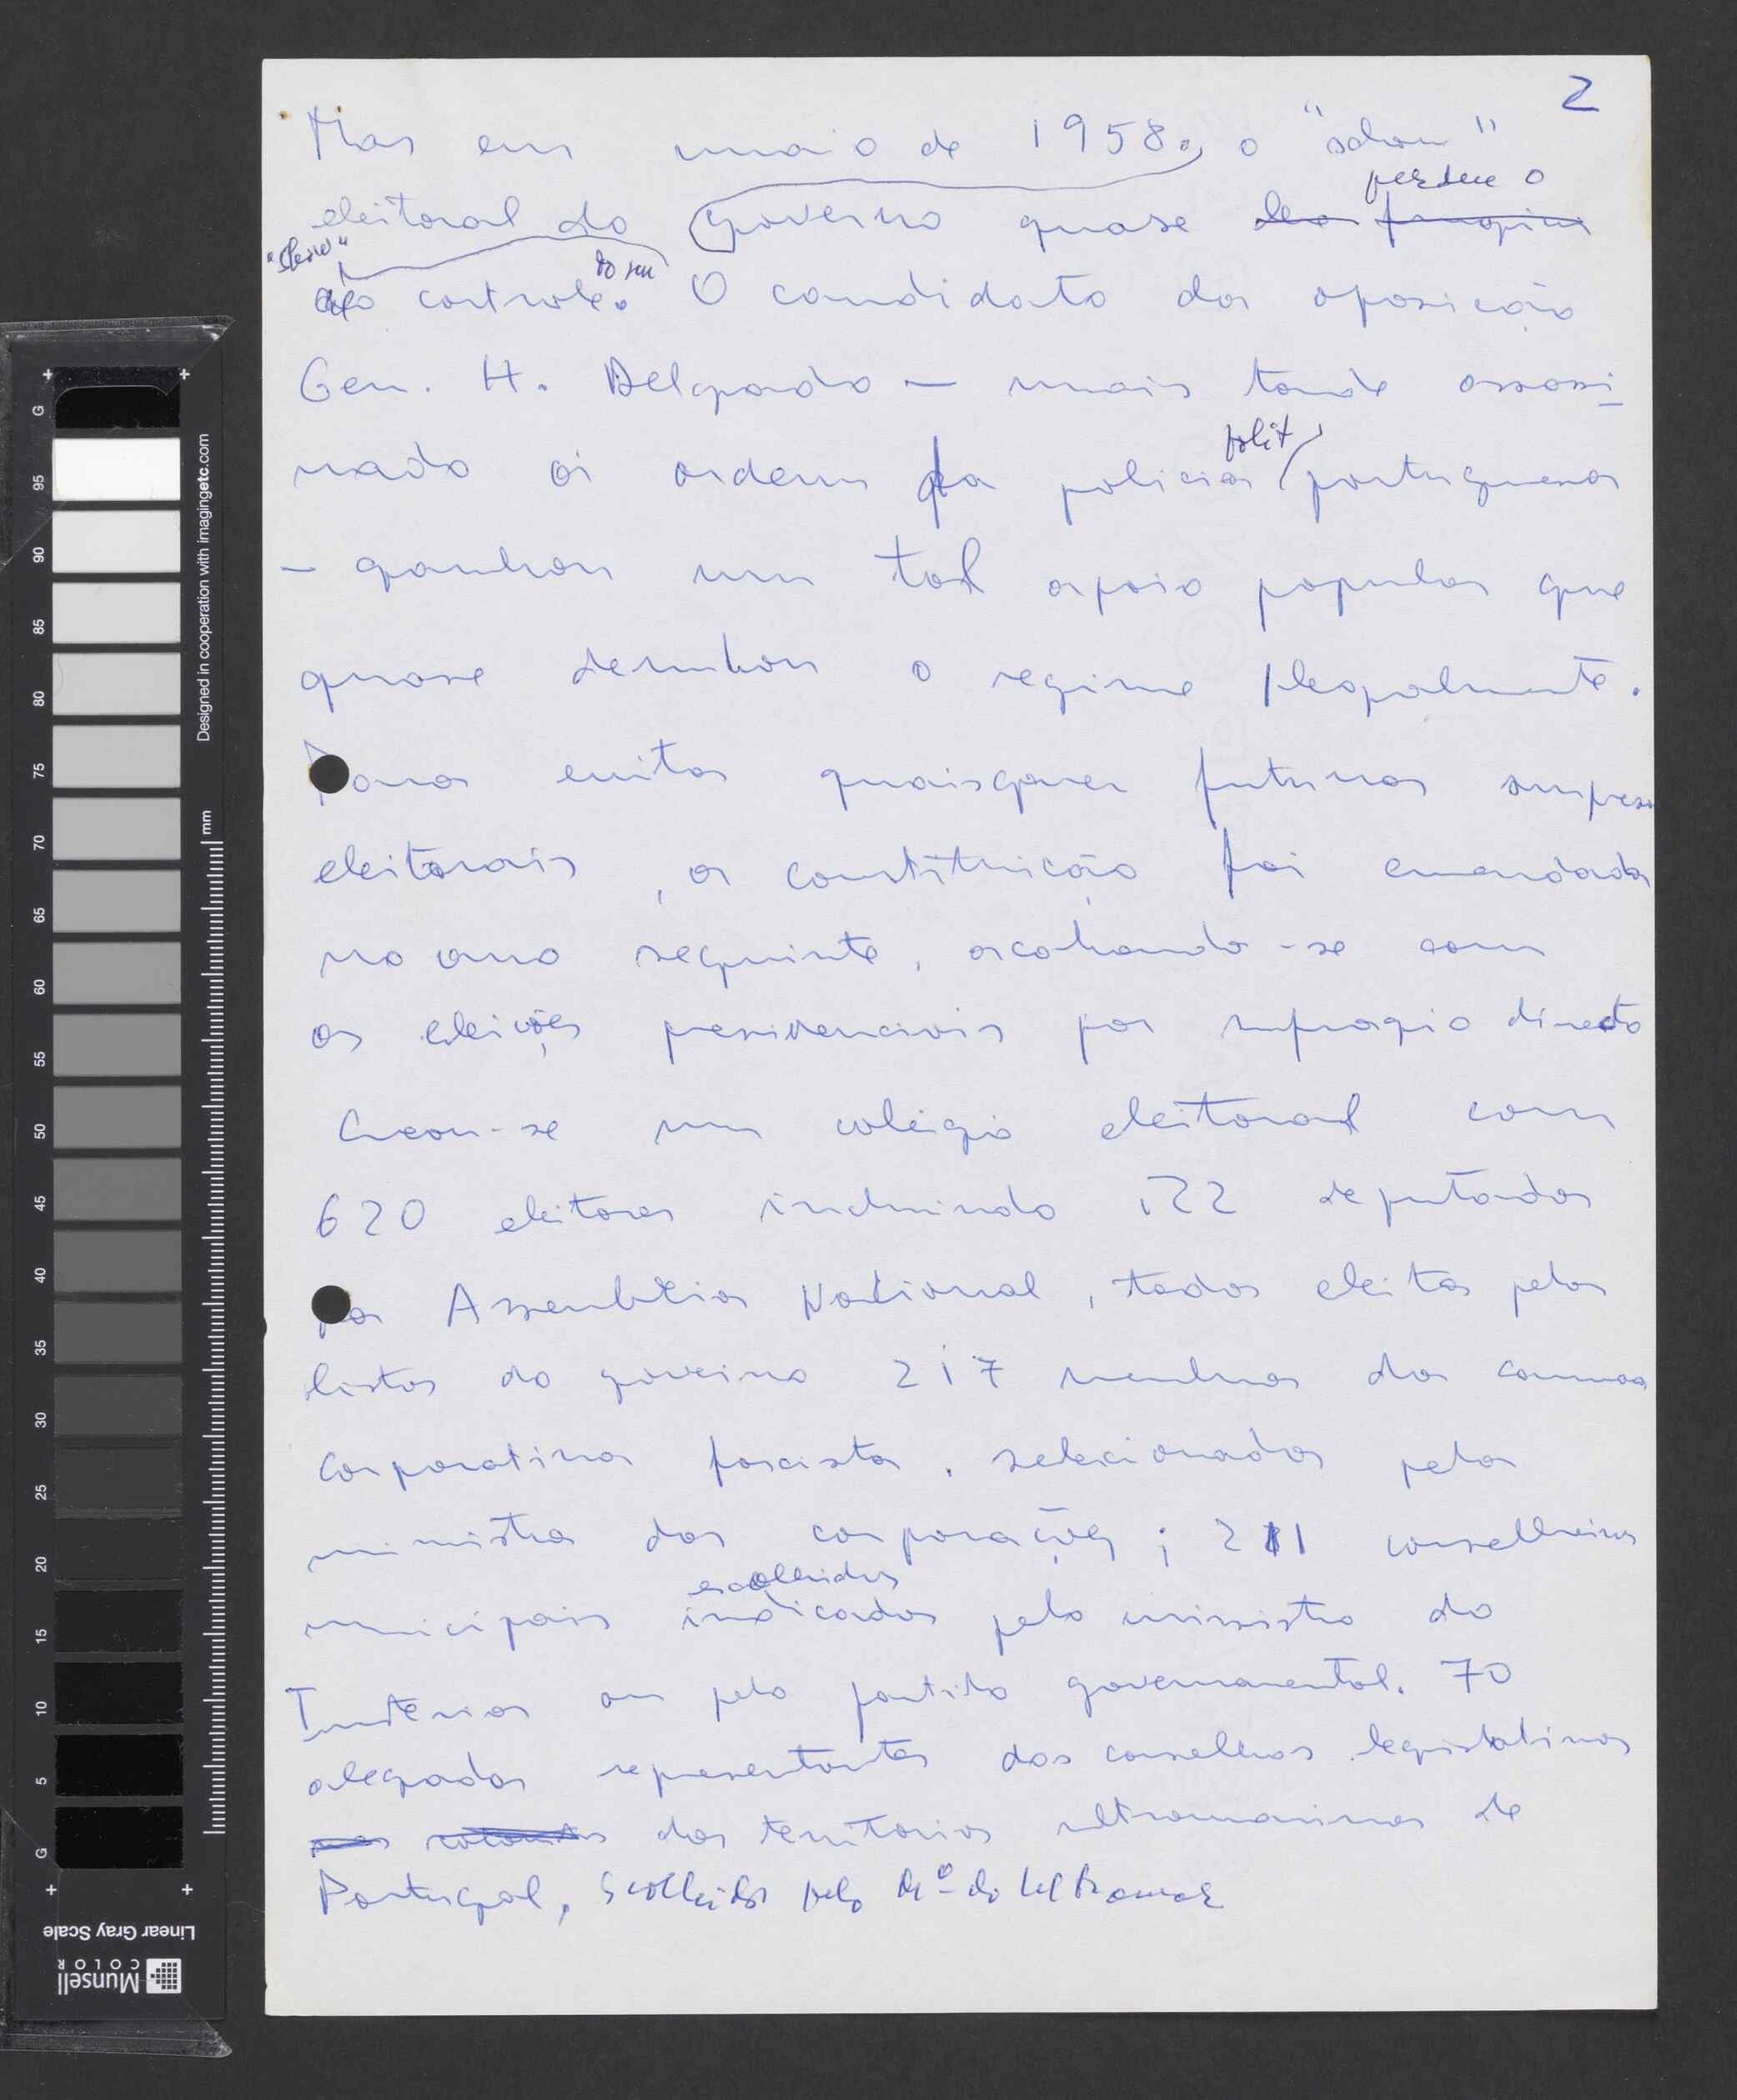 2
Mas em maio de 1958, o "schow"
perdeu o
eleitoral do governo quase
"show"
do seu
do controle. O candidato da oposição
Gen. H. Delgado — mais tarde assassi-
polit
nado à ordem da policia portuguesa
— ganhou um tal apoio popular que
quase derrubou o regime legalmente.
Para evitar quaisquer futuras surpresas
eleitorais, a constituição foi emendada
no ano seguinte, acabando-se com
as eleições presidenciais por sufragio directo
Creou-se um colégio eleitoral com
620 eleitores incluindo 122 deputados
da Assembleia Nacional, todos eleitos pelas
listas do governo 217 membros da camara
corporativa fascista, selecionados pelo
ministro das corporações; 211 conselheiros
escolhidos
municipais indicados pelo ministro do
Interior ou pelo partido governamental. 70
alegados representantes dos conselhos legislativos
dos territorios ultramarinos de
Portugal, escolhidos pelo Mº do Ultramar
G 95 90 85 80 75 70 65 60 55 50 45 40 35 30 25 20 15 10 5 G
Designed in cooperation with imagingetc.com
mm
Linear Gray Scale
Munsell
COLOR